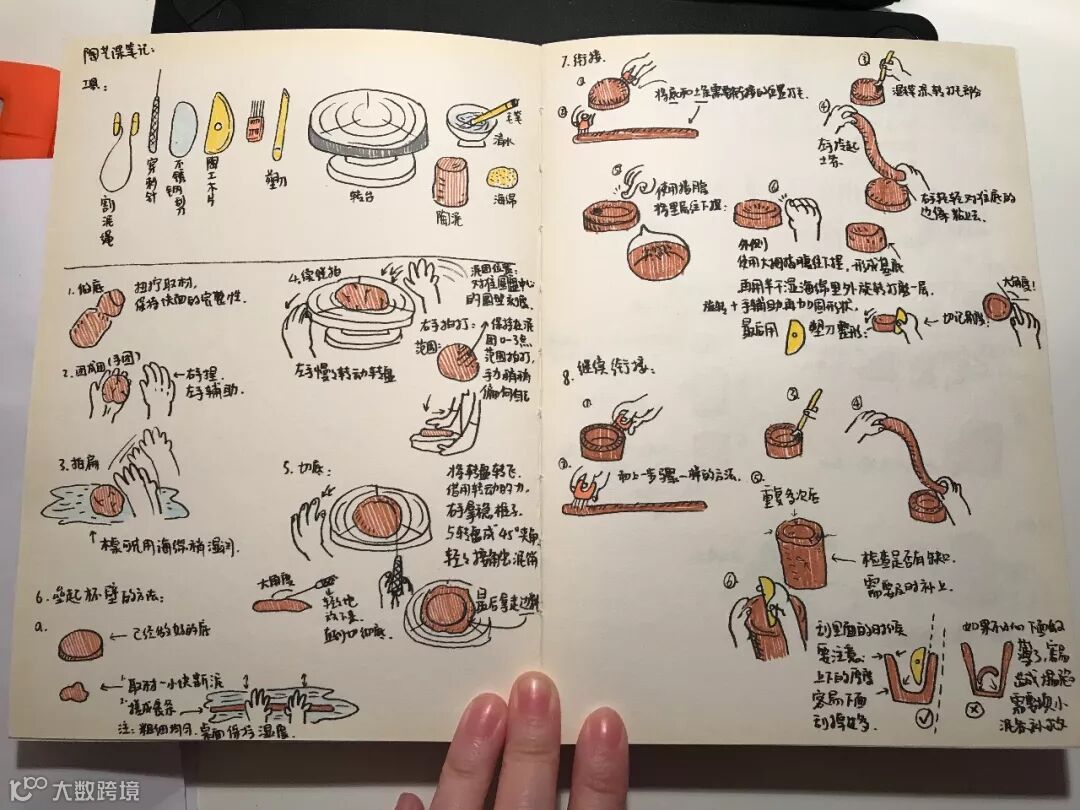 陶艺课笔记:
工具:
割泥绳
穿刺针
不锈钢刮
陶工木片
塑刀
转台
毛笔
清水
陶泥
海绵
1. 做底
扭拧取材,
保持块面的完整性.
2. 团成团(手团)
右手捏
左手辅助.
3. 拍扁
桌面可先用海绵稍湿润.
4. 续继拍
泥团位置:
对准圆盘中心
右手拍打:
范围:
保持在泥
团0-3点
范围拍打,
左手慢慢转动转盘
5. 切底:
将转盘转飞,
借用转动的力,
右手拿稳
与转盘成45°夹角
大角度
轻轻地
最后拿走边料
6. 垒起坯壁的方法:
a.
已经做好的底
1. 取材一小块新泥
2. 搓成长条
注: 粗细均匀. 桌面保持湿度.
7. 衔接.
①
将底和上层需要转接的位置打毛.
②
③
湿珠添到打毛部分
④
左手拎起
土条.
右手轻轻对准底的
边缘粘上去.
⑤
使用指腹
将里层往下捏:
⑥
外侧
使用大拇指腹往下捏, 形成基底
再用半干湿海绵里外旋转打磨一层.
旋转+手辅助再加固形状.
最后用
塑刀整形:
切记角度:
大角度!
8. 继续衔接:
①
②
和上一步骤一样的方法.
③
④
⑤
重复多次后
检查是否有缺口.
需要及时补上.
⑥
刮里面的时候
要注意.
上下的厚度
容易下面
刮得少
如果不小心下面刮
薄了, 容易
造成塌陷
需要换小
泥条补救
大数跨境